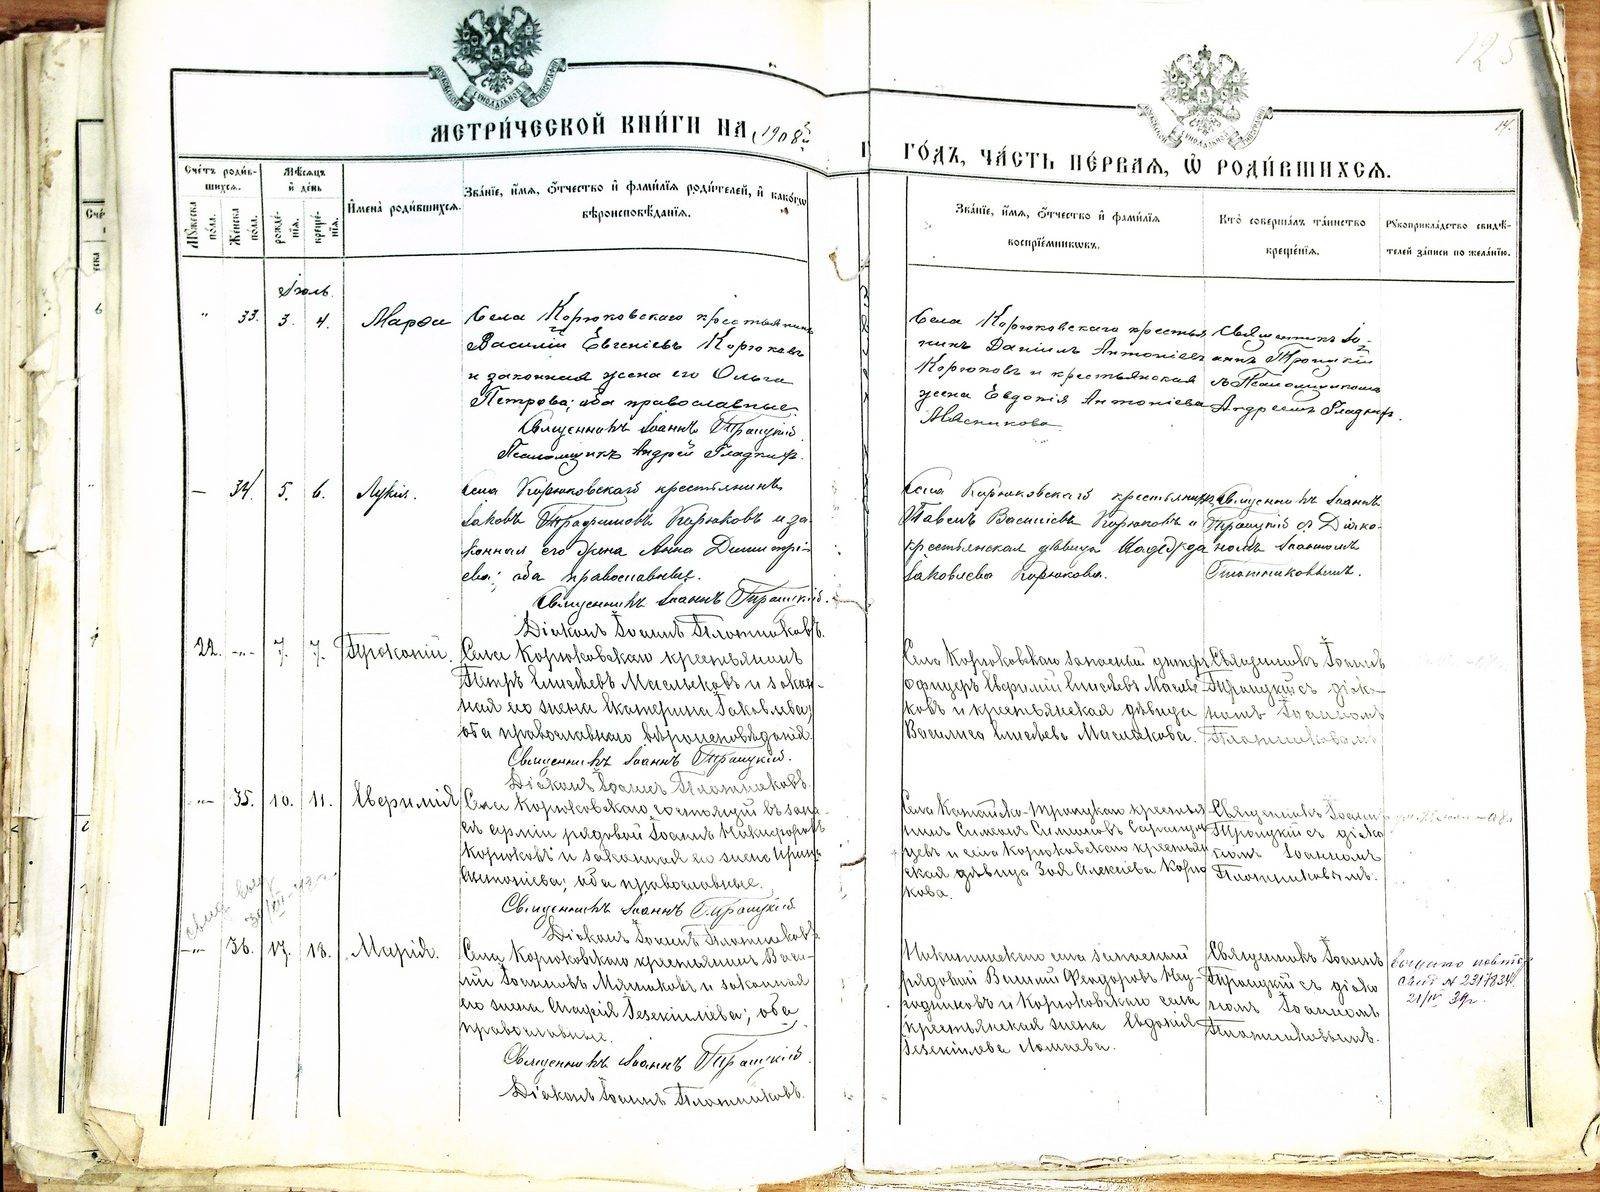 125
МЕТРИ́ЧЕСКОЙ КНИ́ГИ НА 1908й
ГО́ДЪ, ЧА́СТЬ ПЕ́РВАЯ, Ѽ РОДИ́ВШИХСЯ.
14.
Сче́тъ роди́в-
шихся.
Мѣ́сяцъ
и҆ де́нь
И҆мена̀ роди́вшихся.
Зва́нїе, и҆́мя, ѻ҆́тчество и҆ фами́лїя роди́телей, и҆ како́гѡ
вѣроисповѣ́данїя.
Зва́нїе, и҆́мя, ѻ҆́тчество и҆ фами́лїя
воспрїе́мникѡвъ.
Кто̀ соверша́лъ та́инство
креще́нїя.
Рꙋкоприкла́дство свидѣ́-
телей за́писи по жела́нїю.
Мꙋ́жеска
по́ла.
Же́нска
по́ла.
рожде́-
нїя.
креще́-
нїя.
Іюль.
" 33. 3. 4.
Марѳа
Села Корюковскаго крестьянинъ
Василій Евгеніевъ Корюковъ
и законная жена его Ольга
Петрова; оба православные
Священникъ Іоаннъ Троицкій.
Псаломщикъ Андрей Гладкихъ.
Села Корюковскаго крестья
нинъ Даніилъ Антоніевъ
Корюковъ и крестьянская
жена Евдокія Антоніева
Мясникова
Священникъ Іо-
аннъ Троицкій
съ Псаломщикомъ
Андреемъ Гладкихъ.
— 34. 5. 6.
Лукія.
Села Корюковскаго крестьянинъ
Іаковъ Трофимовъ Корюковъ и за-
конная его жена Анна Димитрі-
ева; оба православные.
Священникъ Іоаннъ Троицкій.
Діаконъ Іоаннъ Плотниковъ.
Села Корюковскаго крестьянинъ
Павелъ Василіевъ Корюковъ и
крестьянская дѣвица Надежда
Іаковлева Корюкова.
Священникъ Іоаннъ
Троицкій съ Діако-
номъ Іоанномъ
Плотниковымъ.
22. -"- 7. 7.
Прокопій.
Села Корюковскаго крестьянинъ
Петръ Елисѣевъ Масльковъ и закон-
ная его жена Екатерина Іаковлева;
оба православнаго вѣроисповѣданія.
Священникъ Іоаннъ Троицкій.
Діаконъ Іоаннъ Плотниковъ.
Села Корюковскаго запасный унтеръ
офицеръ Евфимій Елисѣевъ Масль
ковъ и крестьянская дѣвица
Василиса Елисѣева Маслькова.
Священникъ Іоаннъ
Троицкій съ діако-
номъ Іоанномъ
Плотниковымъ
-"- 35. 10. 11.
Евфимія
Села Корюковскаго состоящій въ запа
сѣ арміи рядовой Іоаннъ Никифоровъ
Корюковъ и законная его жена Ирина
Антоніева; оба православные.
Священникъ Іоаннъ Троицкій.
Діаконъ Іоаннъ Плотниковъ.
Села Катайско-Троицкаго крестья
нинъ Симеонъ Симеоновъ Сарапул
цевъ и села Корюковскаго крестьян
ская дѣвица Зоя Алексіева Корю
кова.
Священникъ Іоаннъ
Троицкій съ діако
номъ Іоанномъ
Плотниковымъ.
-"- 36. 17. 18.
Марія.
Села Корюковскаго крестьянинъ Васи-
лій Іоанновъ Мяснаковъ и законная
его жена Іезекіилева; оба
православные.
Священникъ Іоаннъ Троицкій.
Діаконъ Іоаннъ Плотниковъ.
села запасный
рядовой Ѳеодоровъ
и Корюковскаго села
крестьянская жена Евдокія
Іезекіилева Ломаева.
Священникъ Іоаннъ
Троицкій съ діако
номъ Іоанномъ
Плотниковымъ.
выдано повтор
свид № 2317834
21/IV 39г.